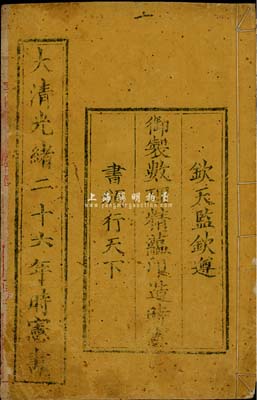 欽天監欽遵
御製數理精蘊印造時憲
書頒行天下
大清光緒二十六年時憲書
上海陽明拍賣